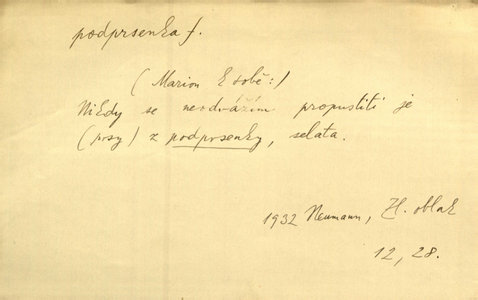 podprsenka f.
(Marion k sobě:)
Nikdy se neodvážím propustiti je
(prsy) z podprsenky,
1932 Neumann, Zl. oblak
12, 28.